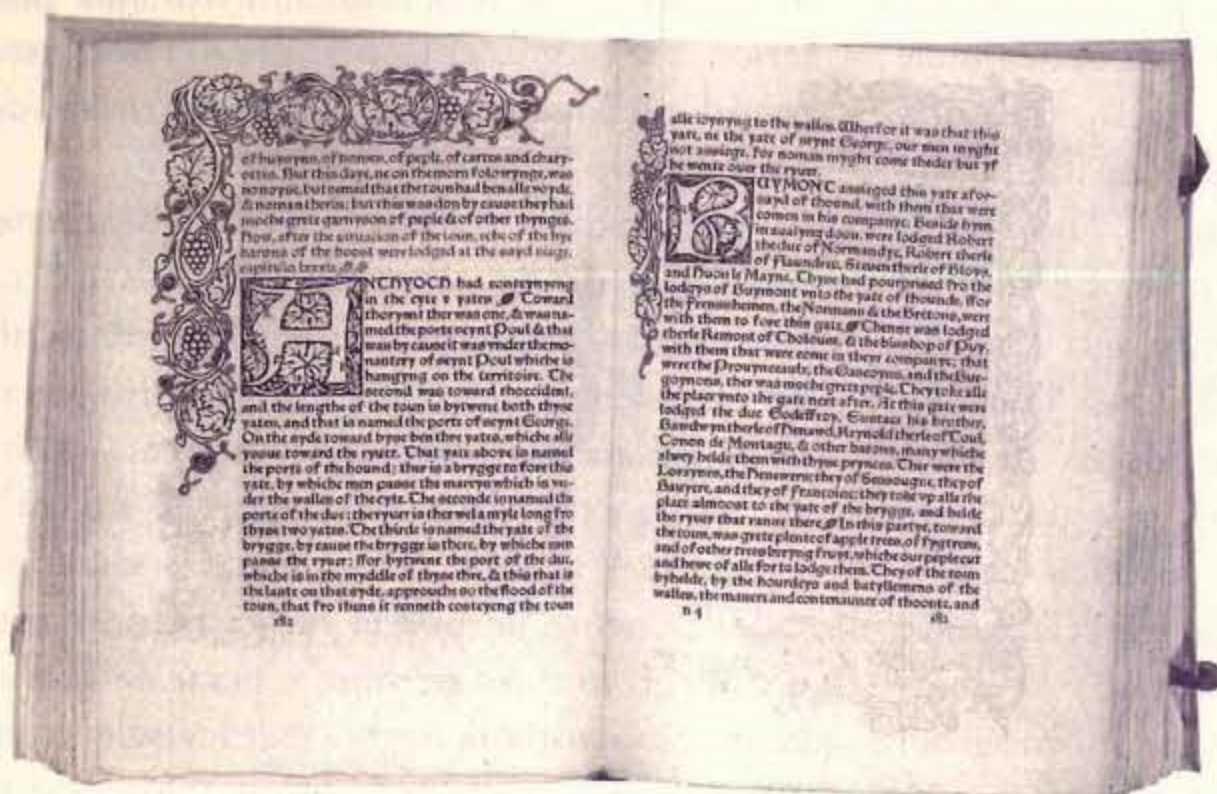 of hunoyn, of homen, of peple, of cartes and chary-
ottes. But this daye, ne on the morn folowynge, was
no noyse, but semed that the toun had ben alle voyde,
& noman therin; but this was don by cause they had
moche grete garnyson of peple & of other thynges.
How, after the situacion of the toun, eche of the hye
barons of the hoost were lodged at the sayd siege,
capitulo
ANTHYOCH had conteynyng
in the cyte v yates Toward
thoryent ther was one, & was na-
med the porte seynt Poul & that
was by cause it was vnder the mo-
nastery of seynt Poul whiche is
hangyng on the territoire. The
second was toward thoccident,
and the lengthe of the toun is bytwene both thyse
yates, and that is named the porte of seynt George.
On the syde toward byse ben thre yates, whiche alle
yssue toward the ryuer. That yate above is named
the porte of the hound; ther is a brygge to fore this
yate, by whiche men passe the mareys which is vn-
der the walles of the cyte. The seconde is named the
porte of the duc; the ryuer is ther wel a myle long fro
thyse two yates. The thirde is named the yate of the
brygge, by cause the brygge is there, by whiche men
passe the ryuer: ffor bytwene the port of the duc,
whiche is in the myddle of thyse thre, & this that is
the laste on that syde, approuche so the flood of the
toun, that fro thens it renneth costeyeng the toun
182
alle ioynyng to the walles. Wherfor it was that this
yate, ne the yate of seynt George, our men myght
not assiege, For noman myght come theder but yf
he wente over the ryuer.
BUYMONT assieged this yate afore-
sayd of thound, with them that were
comen in his companye. Beside hym
in aualyng doun, were lodged Robert
the duc of Normandye, Robert therle
of Flaundres, Steuen therle of Bloys,
and Huon le Mayne. Thyse had pourprised fro the
lodgys of Buymont vnto the yate of thounde, ffor
the Frensshemen, the Normans & the Bretons, were
with them to fore this gate. Thenne was lodged
therle Remont of Tholouse, & the bisshop of Puy,
with them that were come in theyr companye; that
were the Prouynceaulx, the Gascoyns, and the Bur-
goynons, ther was moche grete peple. They toke alle
the place vnto the gate next after. At this gate were
lodged the duc Godeffroy, Eustace his brother,
Bawdwyn therle of Henawd, Reynold therle of Toul,
Conon de Montagu, & other barons, many whiche
alwey helde them with thyse prynces. Ther were the
Lorayns, the Henewers; they of Sassoigne, they of
Bauyere, and they of Franconie; they toke vp alle the
place almoost to the yate of the brygge, and helde
the ryuer that ranne there. In this partye, toward
the toun, was grete plente of apple trees, of fygtrees,
and of other trees beryng fruyt, whiche our peple cut
and hewe of alle for to lodge them. They of the toun
byhelde, by the hourdeys and batyllemens of the
walles, the maners and contenaunce of thooste, and
n 4
182